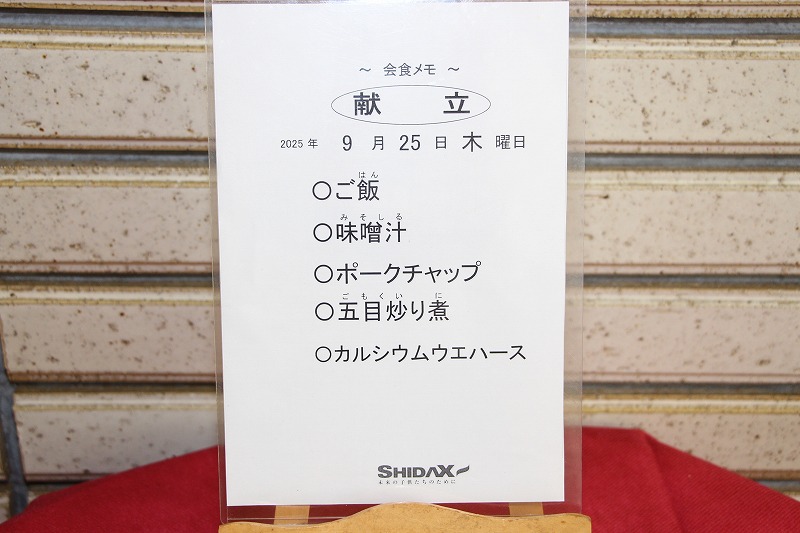 ～ 会食メモ ～
献 立
2025 年 9 月 25 日 木 曜日
はん
○ご飯
みそしる
○味噌汁
○ポークチャップ
ごもくいに
○五目炒り煮
○カルシウムウエハース
SHIDAX
未来の子供たちのために